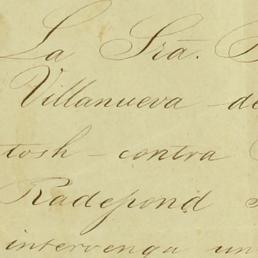 La Sra.
Villanueva de
tosh - contra
Radepond
intervenga un